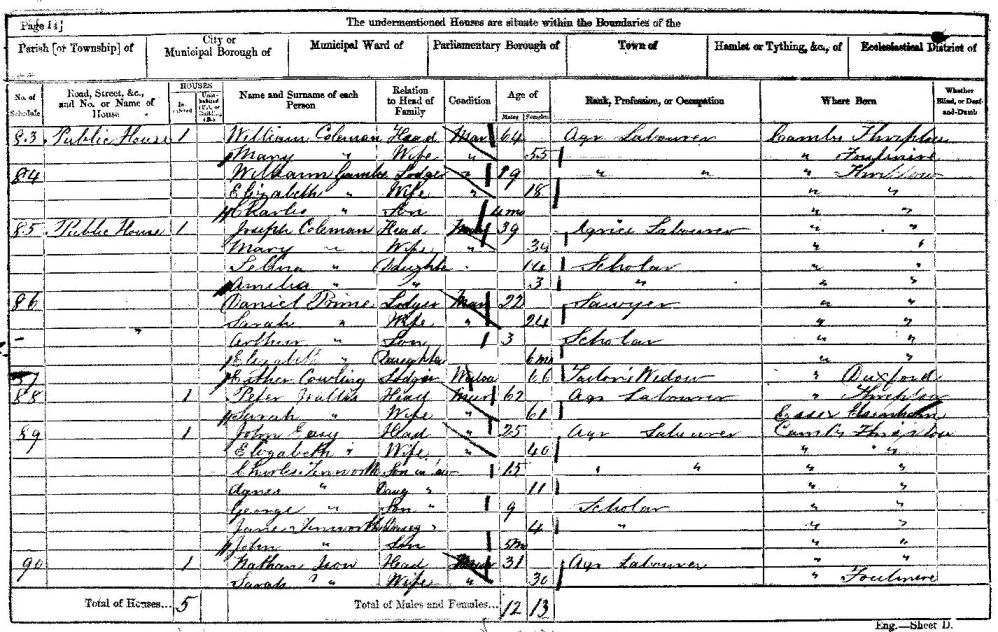 Page 14]
The undermentioned Houses are situate within the Boundaries of the
Parish [or Township] of City or Municipal Borough of Municipal Ward of Parliamentary Borough of Town of Hamlet or Tything, &c., of Ecclesiastical District of
No. of Schedule Road, Street, &c., and No. or Name of House HOUSES Inhabited Name and Surname of each Person Relation to Head of Family Condition Age of Males Females Rank, Profession, or Occupation Where Born Whether Blind, or Deaf-and-Dumb
83 Public House 1 William Coleman Head Mar 64 Agr Labourer Cambs Thriplow
Mary " Wife " 53 " Foulmire
84 William Gamble Lodger " 19 " " " Thriplow
Elizabeth " Wife " 18 " "
Charles " Son 4 mo " "
85 Public House 1 Joseph Coleman Head Mar 39 Agricl Labourer " "
Mary " Wife " 34 " "
Selina " Daughter 14 Scholar " "
Amelia " " 3 " " "
86 Daniel Prime Lodger Mar 22 Sawyer " "
Sarah " Wife " 24 " "
Arthur " Son 3 Scholar " "
Elizabeth " Daughter 6 mo " "
87 Esther Cowling Lodger Widow 66 Tailor's Widow " Duxford
88 1 Peter Wallis Head Mar 62 Agr Labourer " Thriplow
Sarah " Wife " 61 Essex
89 1 John Easy Head " 25 Agr Labourer Cambs Thriplow
Elizabeth " Wife " 40 " "
Charles Son in law 15 " " " "
Agnes " Daug " 11 " "
George " Son " 9 Scholar " "
Jane Daug " 4 " " "
John " Son 5 mo " "
90 1 Nathan Ison Head Mar 31 Agr Labourer " "
Sarah " Wife " 30 " Foulmire
Total of Houses... 5 Total of Males and Females... 12 13
Eng.—Sheet D.